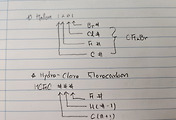 1) Halon
Br #
Cl #
F #
C #
CF₂Br
* Hydro-Cloro Florocarbon
HCFC ***
F #
H (# - 1)
C (# + 1)